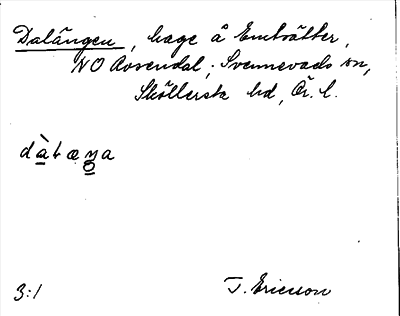 Dalängen, hage å Emtsätter,
NO Rosendal, Svennevads sn,
Sköllersta hd, Ör. l.
dàtæŋa
3:1 T. Ericson